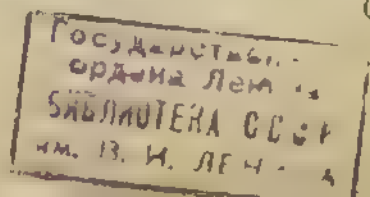 Государствен
ордена Лен
БИБЛИОТЕКА СССР
им. В. И. ЛЕН А